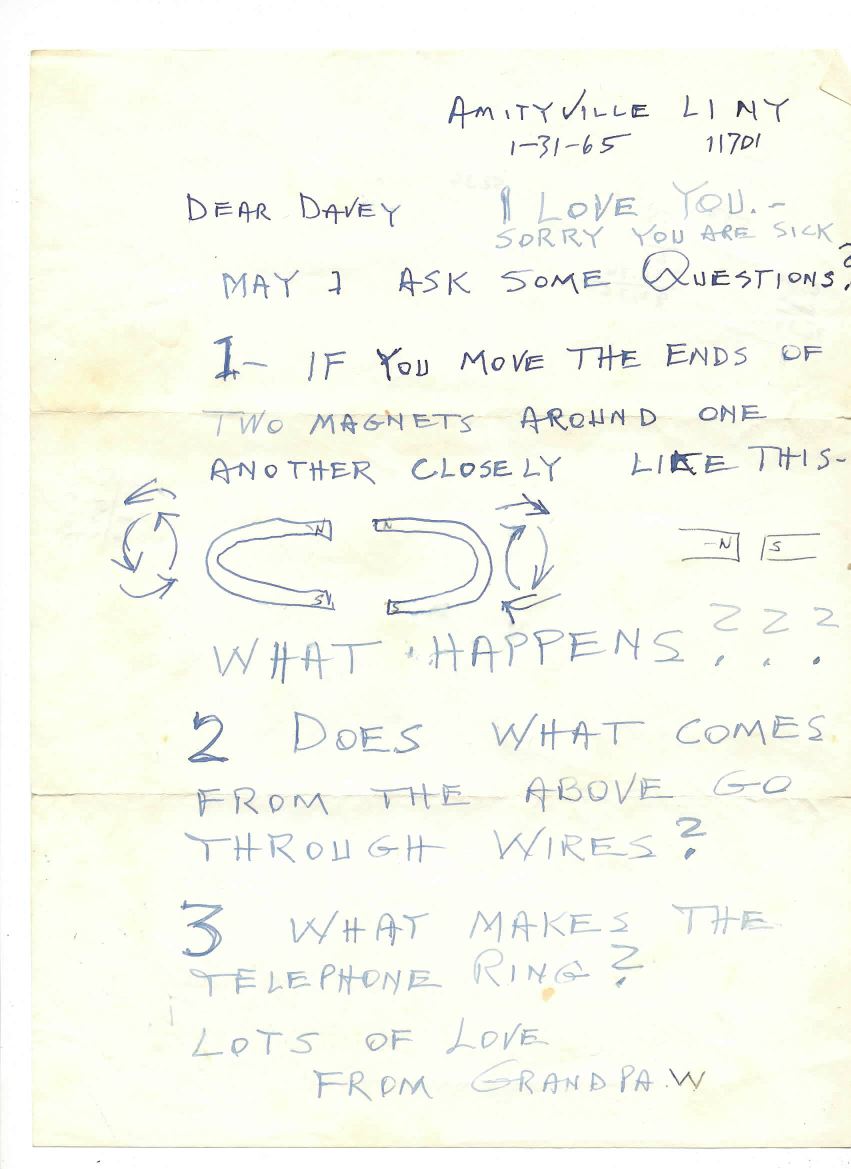 AMITYVILLE LI NY
1-31-65 11701
DEAR DAVEY I LOVE YOU.-
SORRY YOU ARE SICK
MAY I ASK SOME QUESTIONS?
1- IF YOU MOVE THE ENDS OF
TWO MAGNETS AROUND ONE
ANOTHER CLOSELY LIKE THIS-
N N -N S
S S
WHAT HAPPENS ???
2 DOES WHAT COMES
FROM THE ABOVE GO
THROUGH WIRES?
3 WHAT MAKES THE
TELEPHONE RING?
LOTS OF LOVE
FROM GRANDPA.W